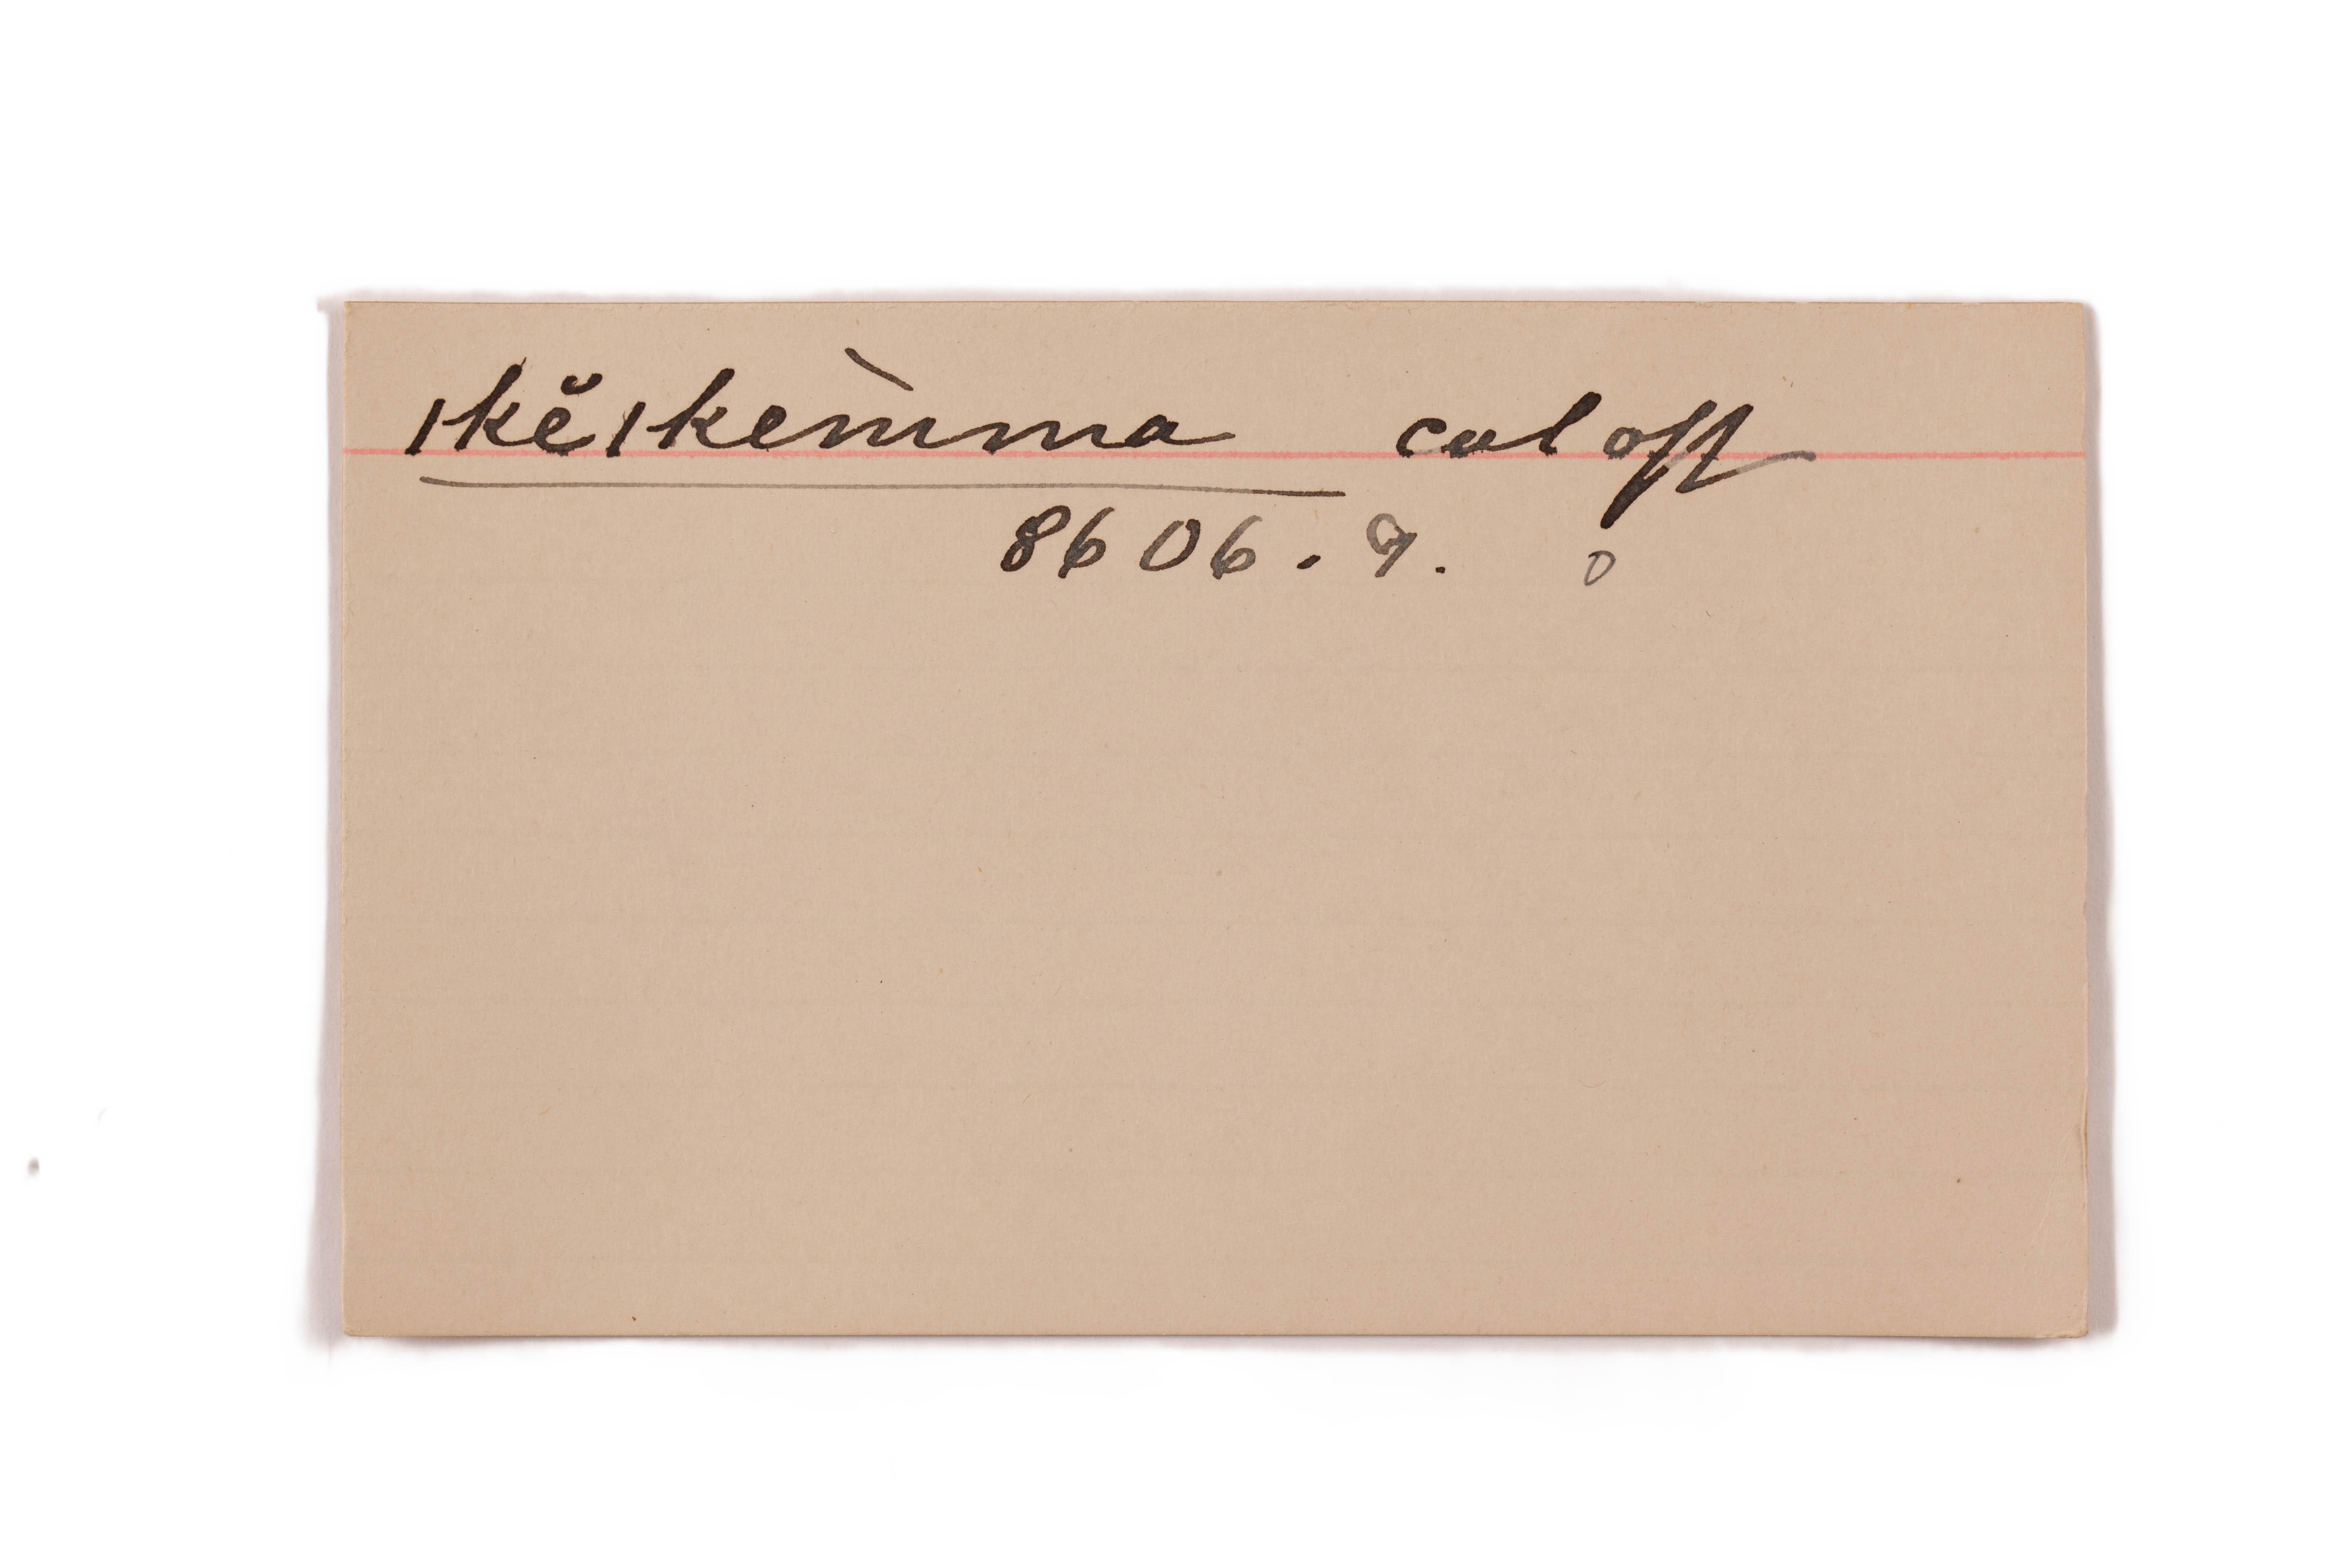 ıkĕıkemìma cut off
8606.9. 0